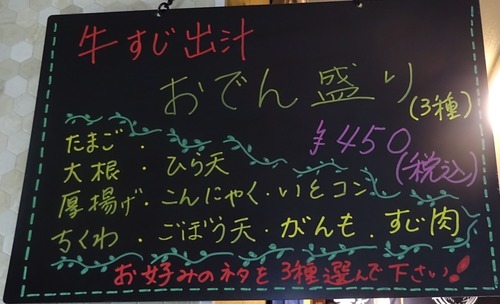 牛すじ出汁
おでん盛り(3種)
¥450(税込)
たまご・
大根・ひら天
厚揚げ・こんにゃく・いとコン
ちくわ・ごぼう天・がんも・すじ肉
お好みのネタを3種選んで下さい!